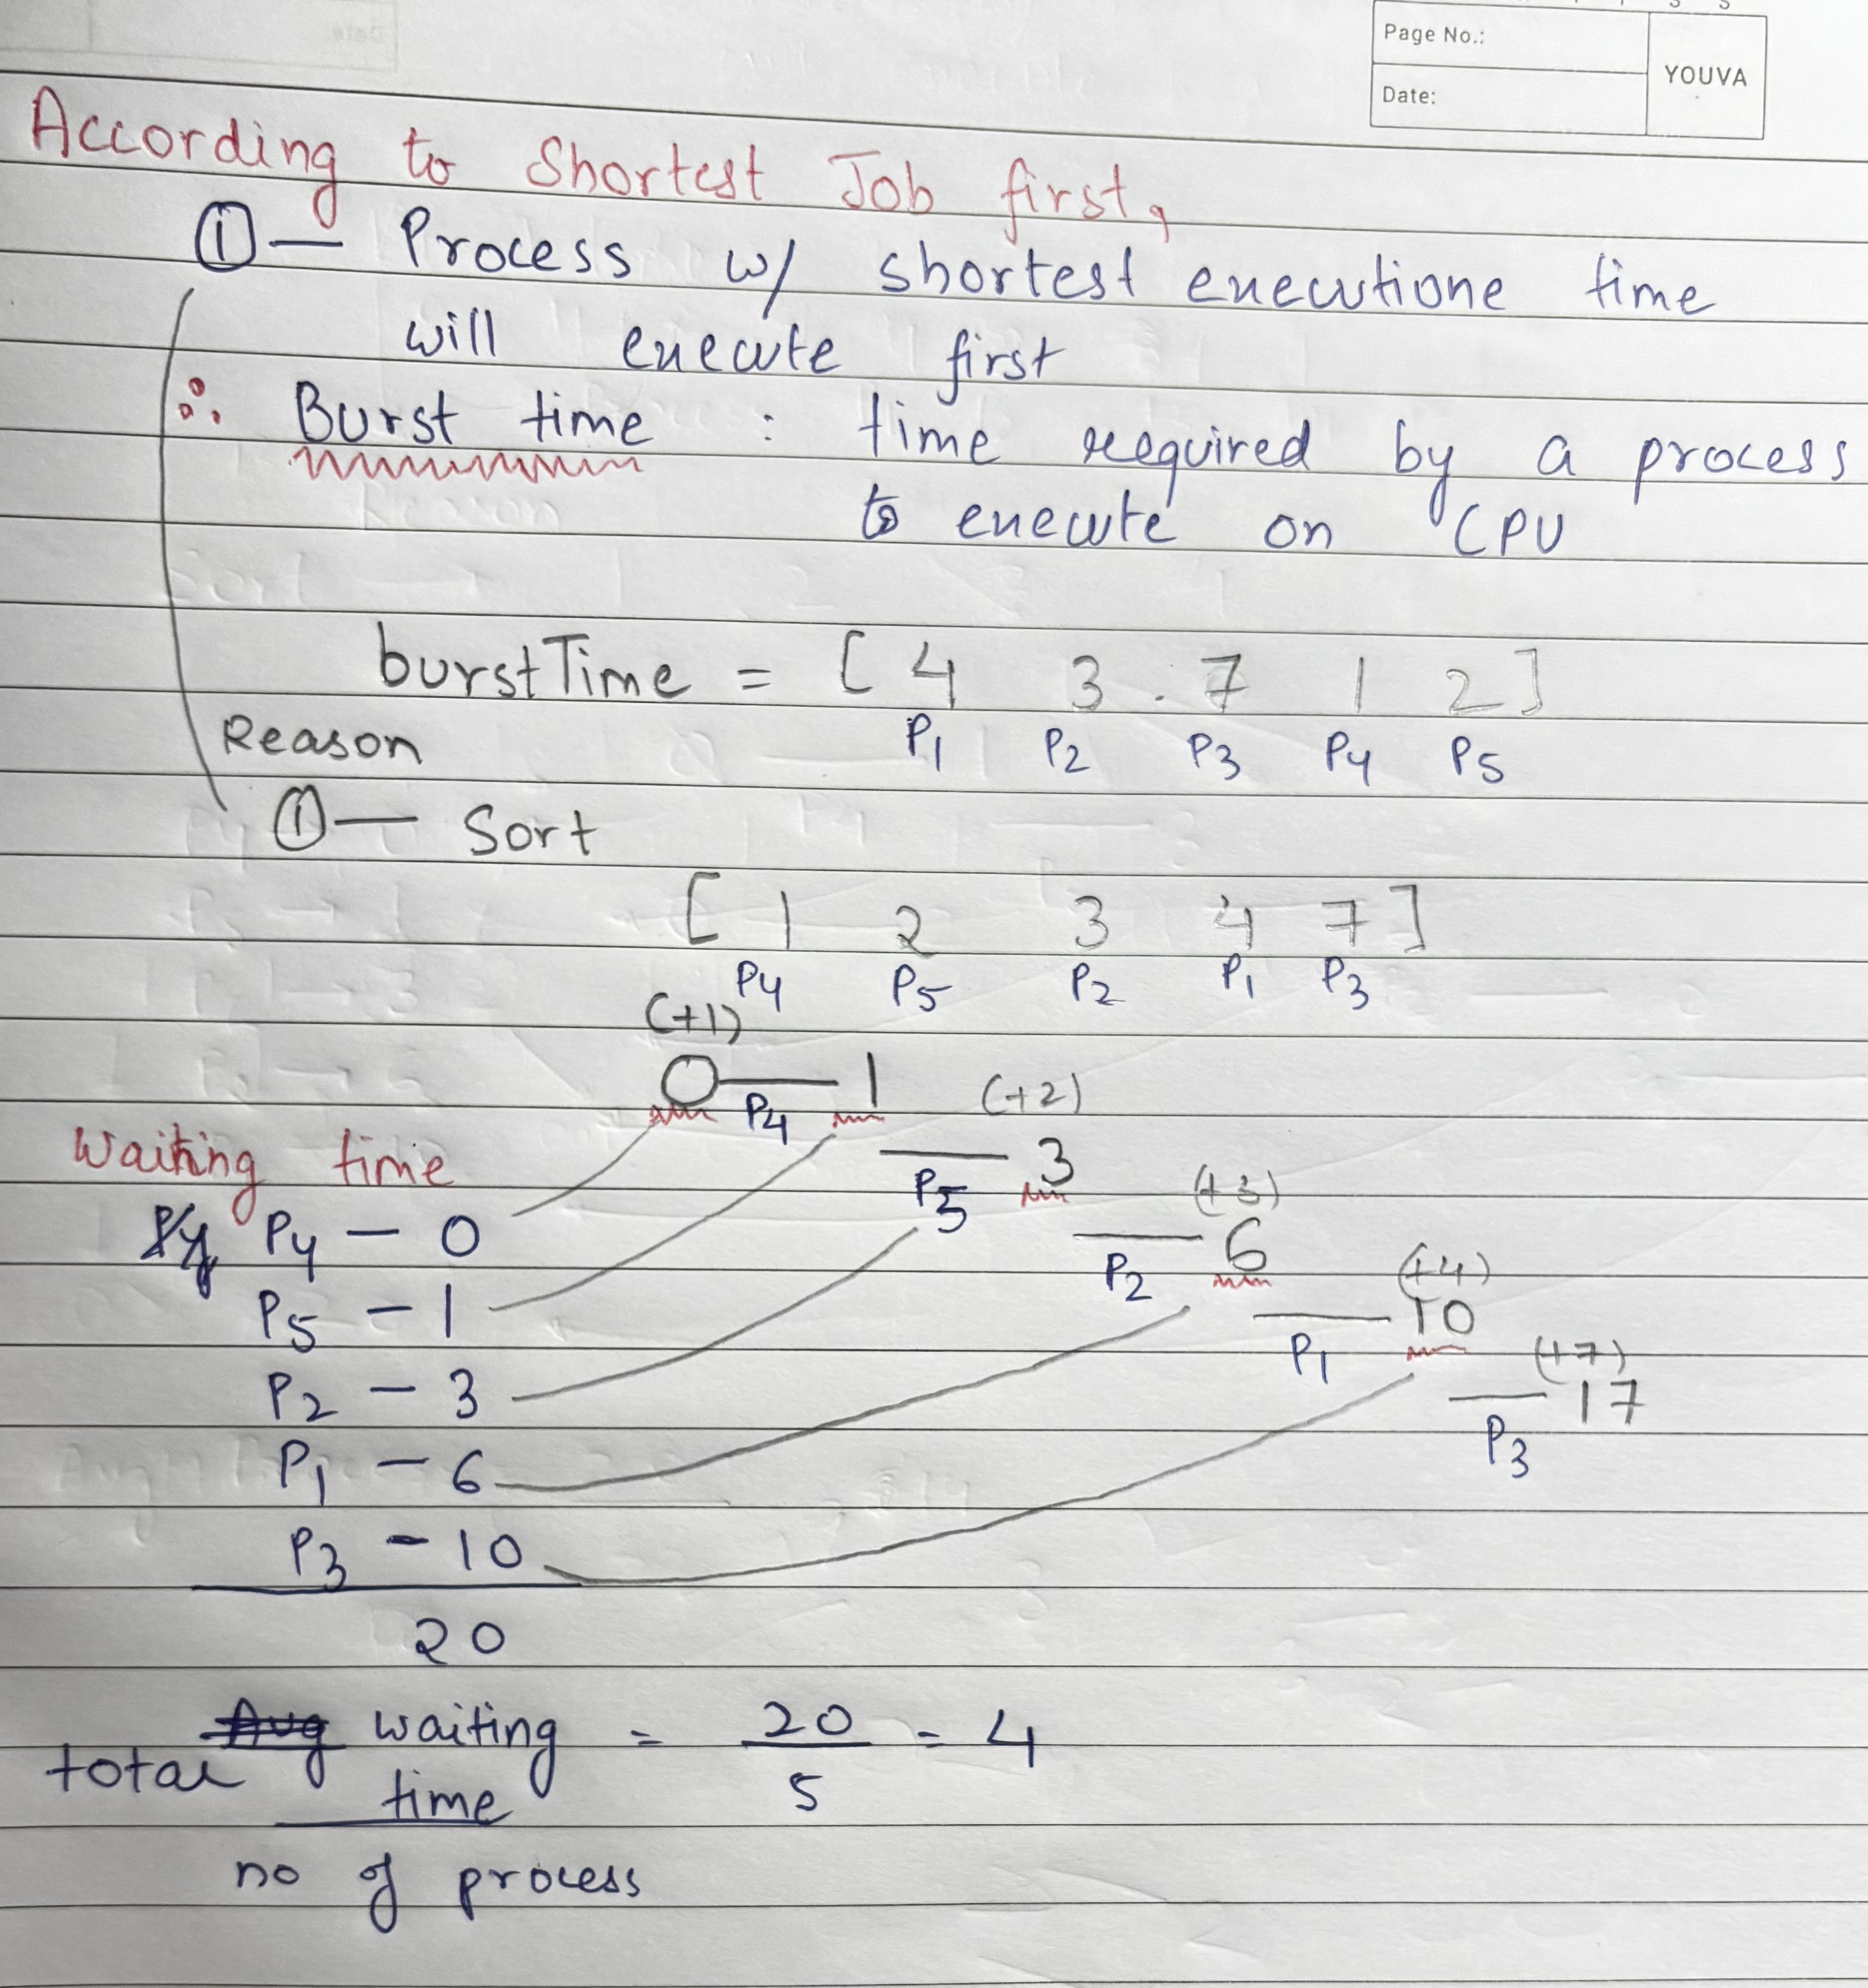 Page No.:
Date:
YOUVA
According to Shortest Job first,
① — Process w/ shortest executione time
will execute first
∴ Burst time : time required by a process
to execute on CPU
burstTime = [ 4 3 . 7 1 2 ]
P1 P2 P3 P4 P5
Reason
① — Sort
[ 1 2 3 4 7 ]
P4 P5 P2 P1 P3
(+1)
0 — 1 (+2)
P4
— 3 (+3)
P5
— 6 (+4)
P2
— 10 (+7)
P1
— 17
P3
Waiting time
P4 — 0
P5 — 1
P2 — 3
P1 — 6
P3 — 10
20
total Avg waiting = 20 = 4
time 5
no of process